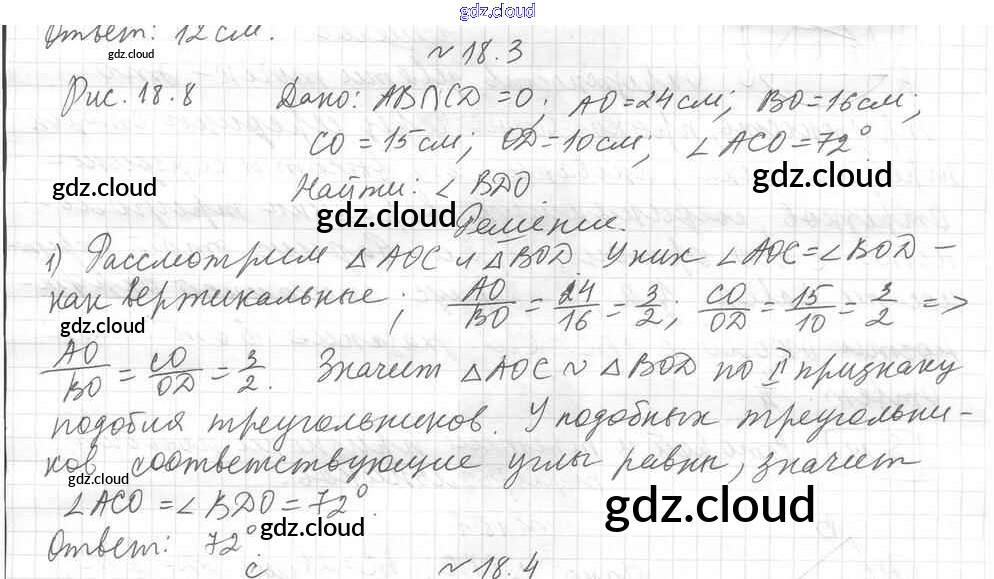 gdz.cloud
Ответ: 12 см.
gdz.cloud
№ 18.3
Рис. 18.8 Дано: AB∩CD = O; AO = 24 см; BO = 16 см;
CO = 15 см; OD = 10 см; ∠ACO = 72°.
gdz.cloud
gdz.cloud
Найти: ∠BDO
gdz.cloud
Решение.
1) Рассмотрим △AOC и △BOD. У них ∠AOC = ∠BOD –
как вертикальные; AO/BO = 24/16 = 3/2; CO/OD = 15/10 = 3/2 =>
gdz.cloud
AO/BO = CO/OD = 3/2. Значит △AOC ~ △BOD по II признаку
подобия треугольников. У подобных треугольни-
ков соответствующие углы равны, значит
∠ACO = ∠BDO = 72°.
gdz.cloud
gdz.cloud
Ответ: 72°.
№ 18.4